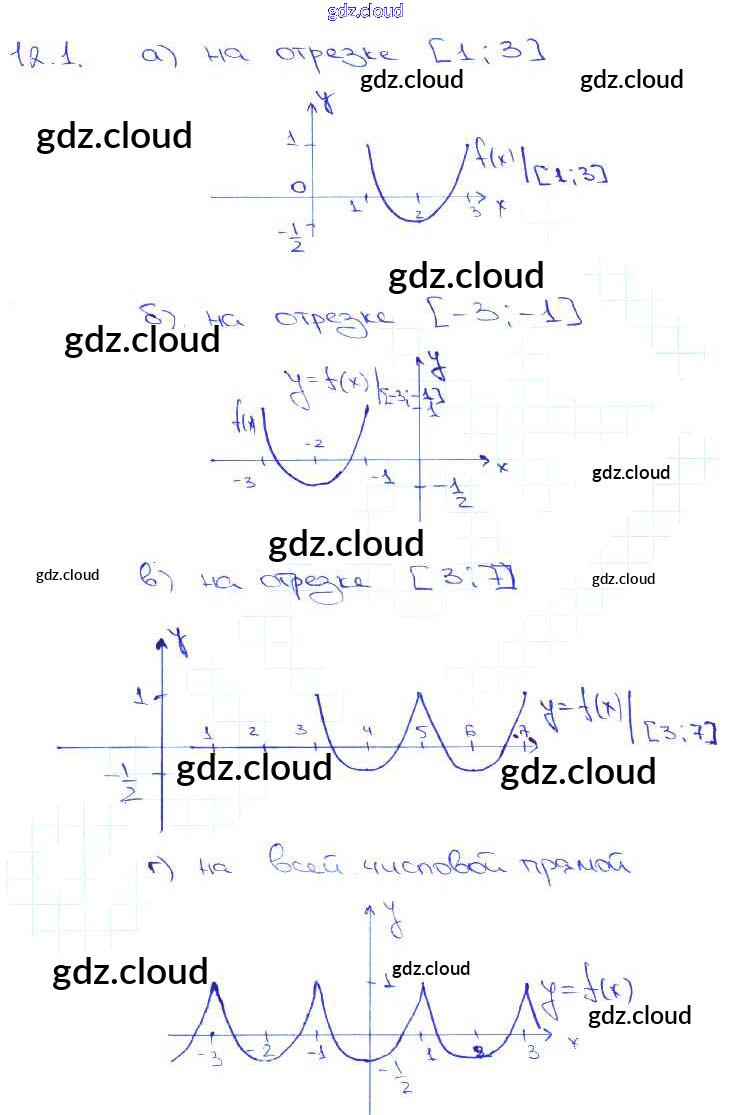 gdz.cloud
12.1. а) на отрезке [1;3]
gdz.cloud gdz.cloud
y
gdz.cloud
1
f(x)|[1;3]
0
1 2 3 x
-1/2
gdz.cloud
б) на отрезке [-3;-1]
gdz.cloud
y
y=f(x)|[-3;-1]
1
f(x)
-2
-3 -1 x
gdz.cloud
-1/2
gdz.cloud
gdz.cloud в) на отрезке [3;7] gdz.cloud
y
1
y=f(x)|[3;7]
1 2 3 4 5 6 7
gdz.cloud gdz.cloud
-1/2
г) на всей числовой прямой
y
gdz.cloud gdz.cloud
1
y=f(x)
gdz.cloud
-3 -2 -1 1 2 3 x
-1/2
gdz.cloud gdz.cloud